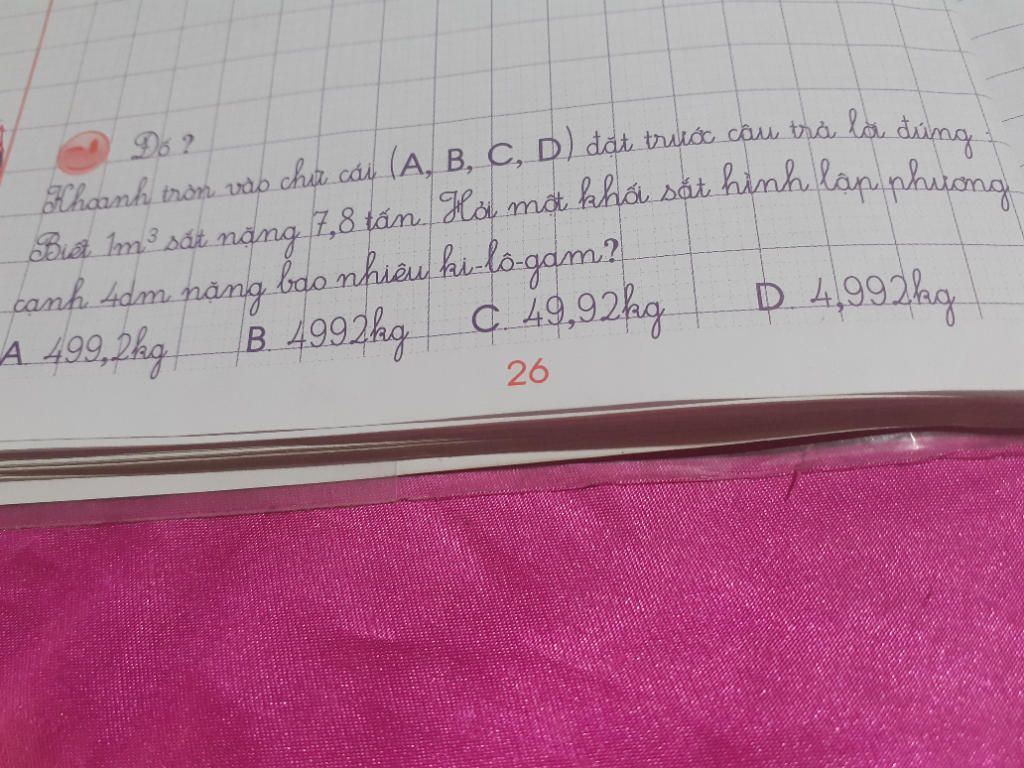 Đố?
Khoanh tròn vào chữ cái (A, B, C, D) đặt trước câu trả lời đúng:
Biết 1m³ sắt nặng 7,8 tấn. Hỏi một khối sắt hình lập phương
cạnh 4dm nặng bao nhiêu ki-lô-gam?
A. 499,2kg B. 4992kg C. 49,92kg D. 4,992kg
26